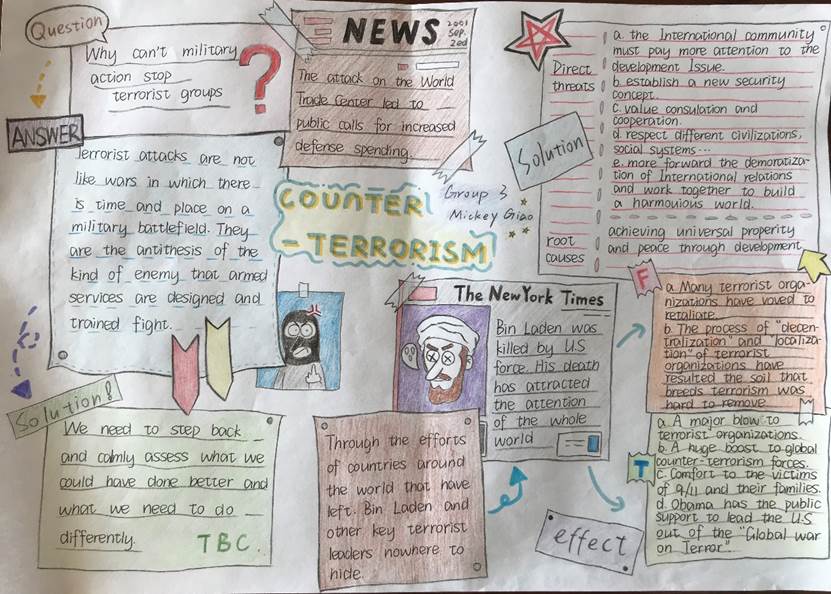 Question
Why can't military
action stop
terrorist groups
?
ANSWER
Terrorist attacks are not
like wars in which there
is time and place on a
military battlefield. They
are the antithesis of the
kind of enemy that armed
services are designed and
trained fight.
Solution!
We need to step back
and calmly assess what we
could have done better and
what we need to do
differently.
TBC.
NEWS
2001
Sep.
2nd
The attack on the World
Trade Center led to
public calls for increased
defense spending.
COUNTER
-TERRORISM
Group 3
Mickey Giao
The New York Times
Bin Laden was
killed by U.S
force. His death
has attracted
the attention
of the whole
world
Through the efforts
of countries around
the world that have
left. Bin Laden and
other key terrorist
leaders nowhere to
hide.
effect
Solution
Direct
threats
a. the International community
must pay more attention to the
development Issue.
b. establish a new security
concept.
c. value consulation and
cooperation.
d. respect different civilizations,
social systems...
e. more forward the demoratiza-
tion of International relations
and work together to build
a harmouious world.
root
causes
achieving universal properity
and peace through development
F
a. Many terrorist orga-
nizations have vowed to
retaliate.
b. The process of "decen-
tralization" and "localiza-
tion" of terrorist
organizations have
resulted the soil that
breeds terrorism was
hard to remove.
T
a. A major blow to
terrorist organizations.
b. A huge boost to global
counter-terrorism forces.
c. Comfort to the victims
of 9/11 and their families.
d. Obama has the public
support to lead the U.S
out of the "Global war
on Terror".